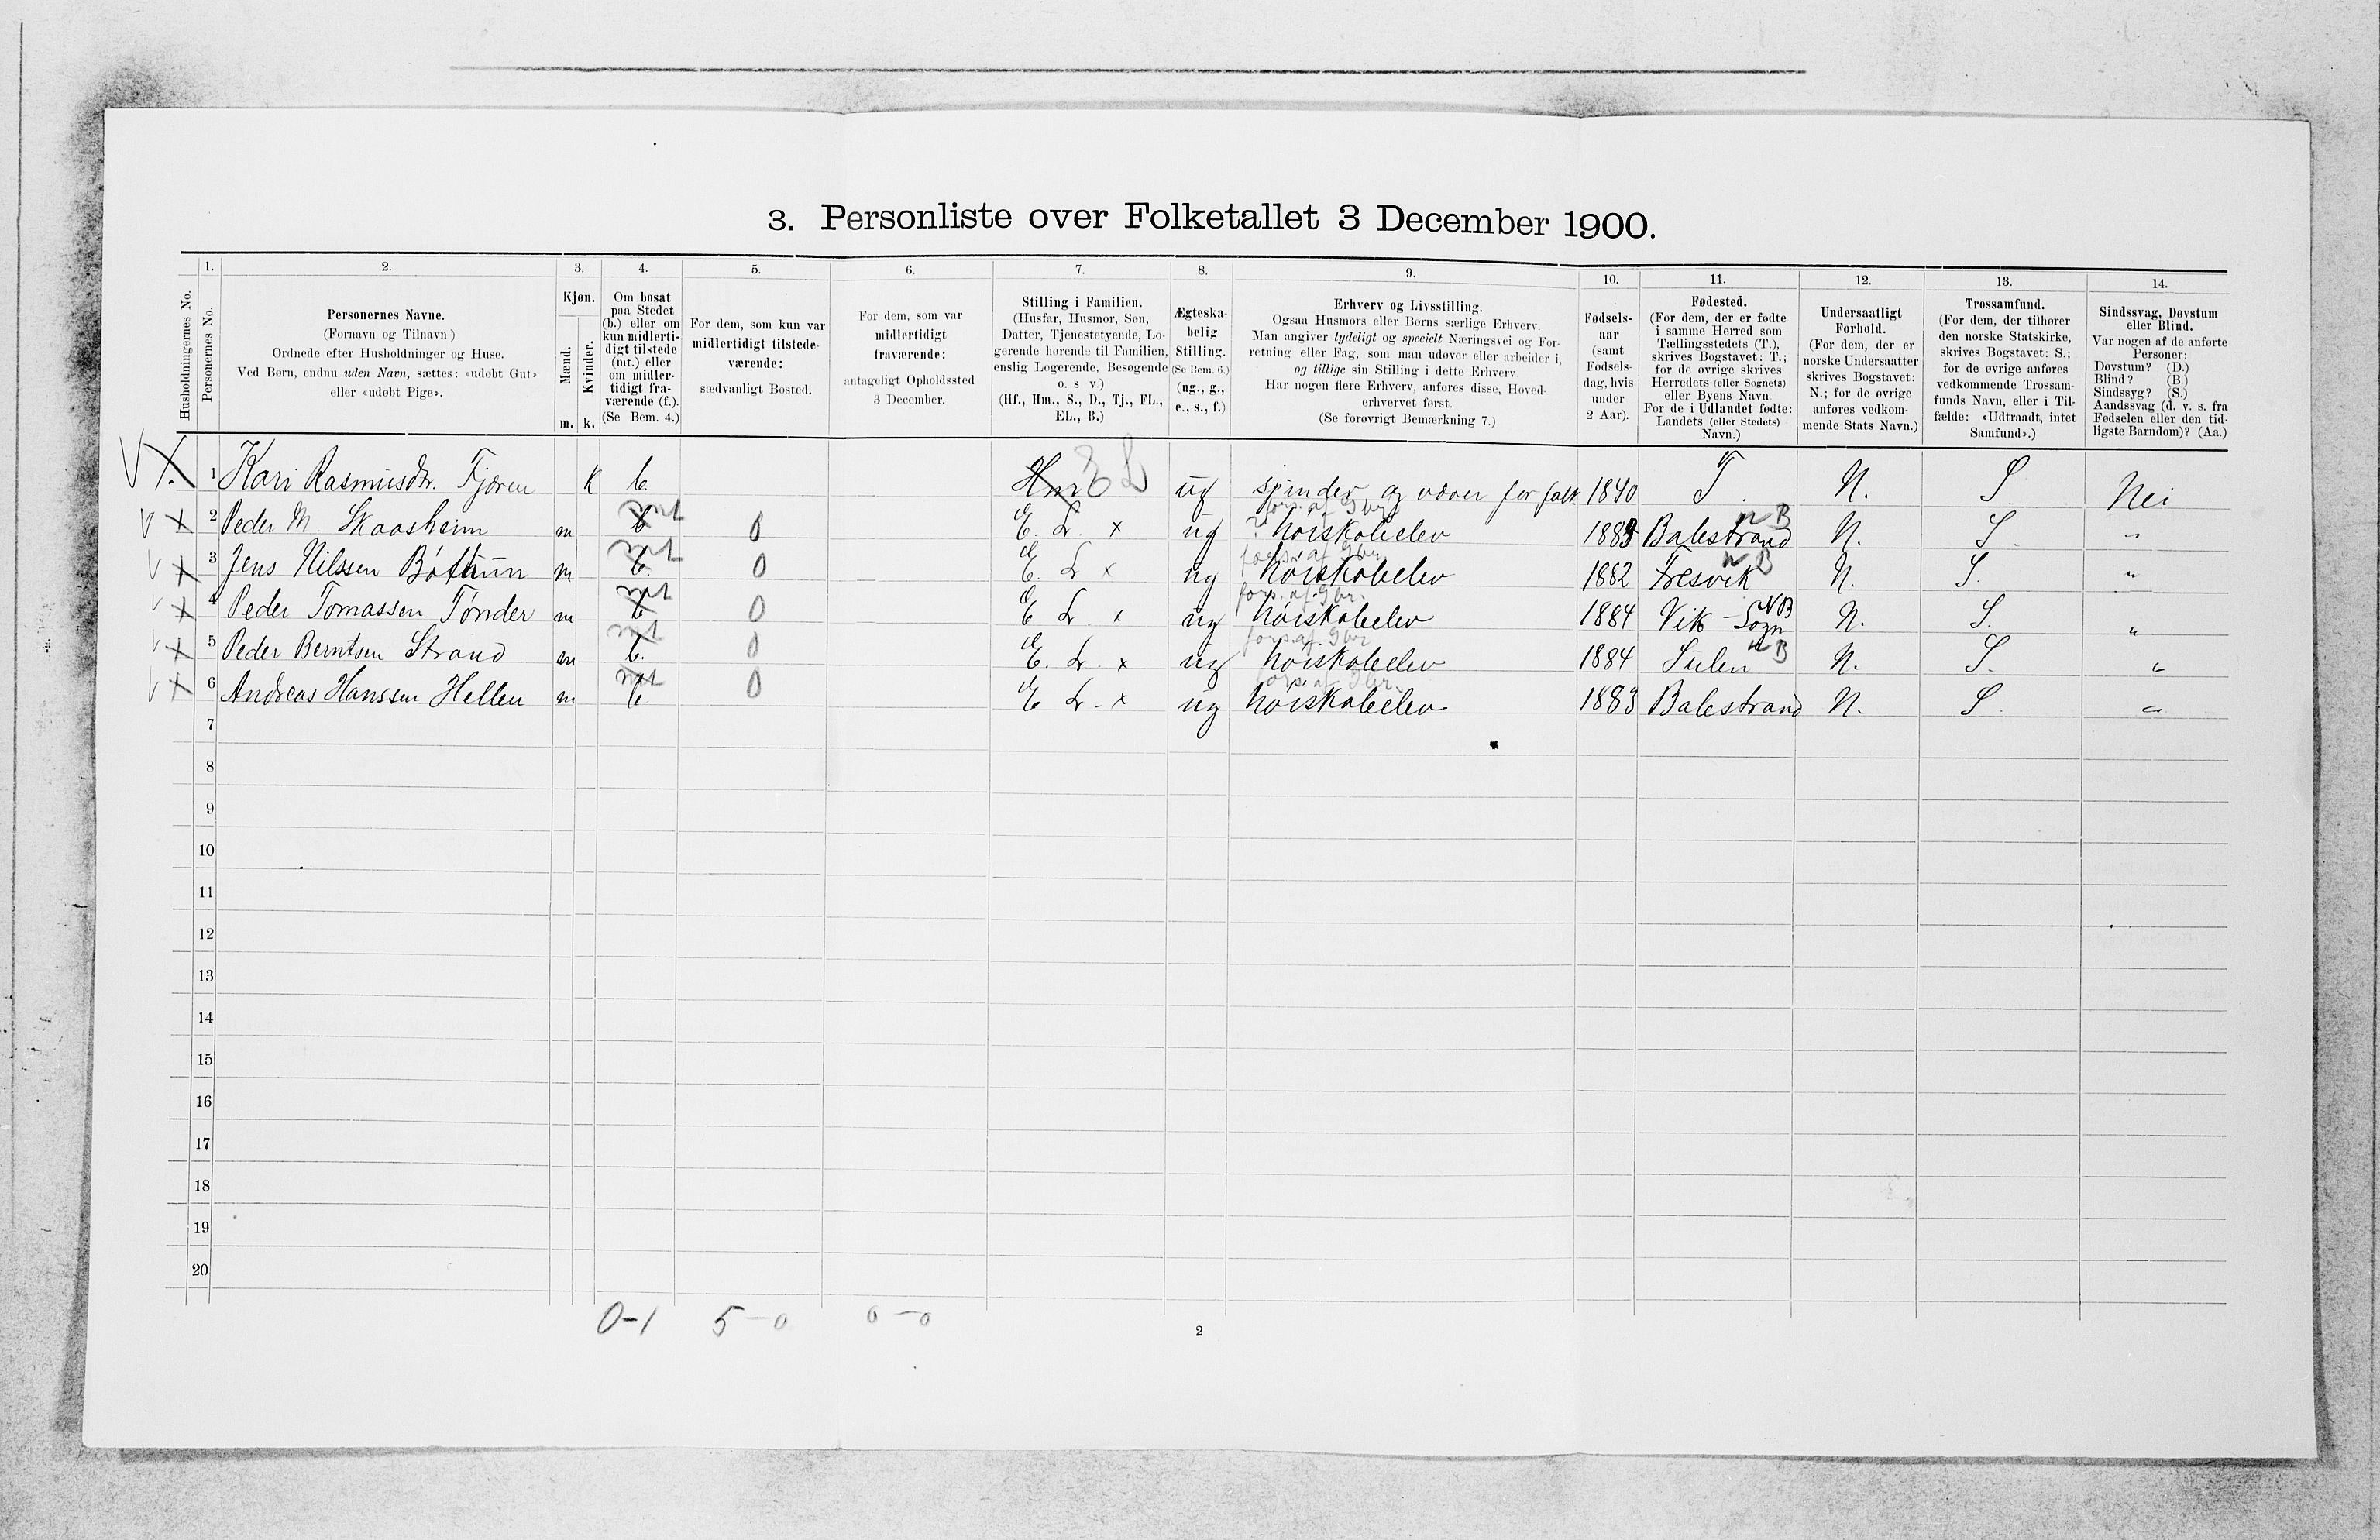 3. Personliste over Folketallet 3 December 1900.
1. 2. 3. 4. 5. 6. 7. 8. 9. 10. 11. 12. 13. 14.
Husholdningernes No.
Personernes No.
Personernes Navne.
(Fornavn og Tilnavn)
Ordnede efter Husholdninger og Huse.
Ved Børn, endnu uden Navn, sættes: «udøbt Gut»
eller «udøbt Pige».
Kjøn.
Mænd.
Kvinder.
m. k.
Om bosat
paa Stedet
(b.) eller om
kun midlerti-
digt tilstede
(mt.) eller
om midler-
tidigt fra-
værende (f.).
(Se Bem. 4.)
For dem, som kun var
midlertidigt tilstede-
værende:
sædvanligt Bosted.
For dem, som var
midlertidigt
fraværende:
antageligt Opholdssted
3 December.
Stilling i Familien.
(Husfar, Husmor, Søn,
Datter, Tjenestetyende, Lo-
gerende hørende til Familien,
enslig Logerende, Besøgende
o. s v.)
(Hf., Hm., S., D., Tj., FL.,
EL., B.)
Ægteska-
belig
Stilling.
(Se Bem. 6.)
(ug., g.,
e., s., f.)
Erhverv og Livsstilling.
Ogsaa Husmors eller Børns særlige Erhverv.
Man angiver tydeligt og specielt Næringsvei og For-
retning eller Fag, som man udøver eller arbeider i,
og tillige sin Stilling i dette Erhverv
Har nogen flere Erhverv, anføres disse, Hoved-
erhvervet først.
(Se forøvrigt Bemærkning 7.)
Fødsels-
aar
(samt
Fødsels-
dag, hvis
under
2 Aar).
Fødested.
(For dem, der er fødte
i samme Herred som
Tællingsstedets (T.),
skrives Bogstavet: T.;
for de øvrige skrives
Herredets (eller Sognets)
eller Byens Navn
For de i Udlandet fødte:
Landets (eller Stedets)
Navn.)
Undersaatligt
Forhold.
(For dem, der er
norske Undersaatter
skrives Bogstavet:
N.; for de øvrige
anføres vedkom-
mende Stats Navn.)
Trossamfund.
(For dem, der tilhører
den norske Statskirke,
skrives Bogstavet: S.;
for de øvrige anføres
vedkommende Trossam-
funds Navn, eller i Til-
fælde: «Udtraadt, intet
Samfund».)
Sindssvag, Døvstum
eller Blind.
Var nogen af de anførte
Personer:
Døvstum? (D.)
Blind? (B.)
Sindssyg? (S.)
Aandssvag (d. v. s. fra
Fødselen eller den tid-
ligste Barndom)? (Aa.)
V X. 1 Kari Rasmusdtr. Fjæren k b. Hm E L ug spinder og væver for folk. 1840 T. N. S. Nei
fors. af Gbr.
V X 2 Peder M. Skaasheim m b mt 0 E. L. x ug ? høiskoleelev 1883 Balestrand n B N. S. "
fors. af Gbr.
V X 3 Jens Nilssen Bøthun m b. mt 0 E. L x ug høiskoleelev 1882 Fresvik n B N. S. "
fors. af Gbr.
V X 4 Peder Tomassen Tønder m b mt 0 E L. x ug høiskoleelev 1884 Vik - Sogn NB N. S. "
fors. af Gbr
V X 5 Peder Berntsen Strand m b. mt 0 E. L. x ug høiskoleelev 1884 Sulen n B N. S. "
fors. af Gbr.
V X 6 Andreas Hanssen Hellen m b. mt 0 E L. x ug høiskoleelev 1883 Balestrand N. S. "
7
8
9
10
11
12
13
14
15
16
17
18
19
20
0-1 5-0 0-0
2